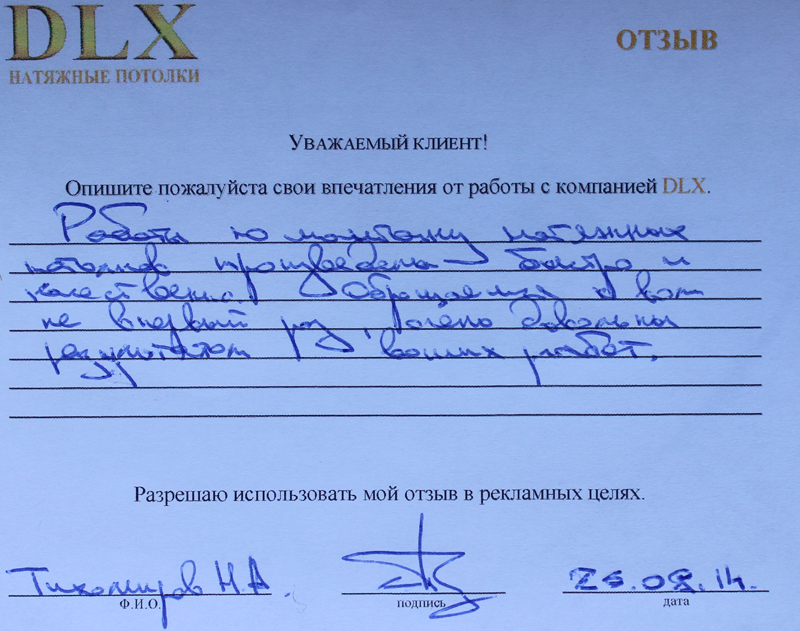 DLX
НАТЯЖНЫЕ ПОТОЛКИ
ОТЗЫВ
УВАЖАЕМЫЙ КЛИЕНТ!
Опишите пожалуйста свои впечатления от работы с компанией DLX.
Работы по монтажу натяжных
потолков произведены быстро и
качественно. Обращаемся к вам
не в первый раз, очень довольны
результатом ваших работ.
Разрешаю использовать мой отзыв в рекламных целях.
Тихомиров Н.А.
Ф.И.О.
подпись
25.08.14.
дата